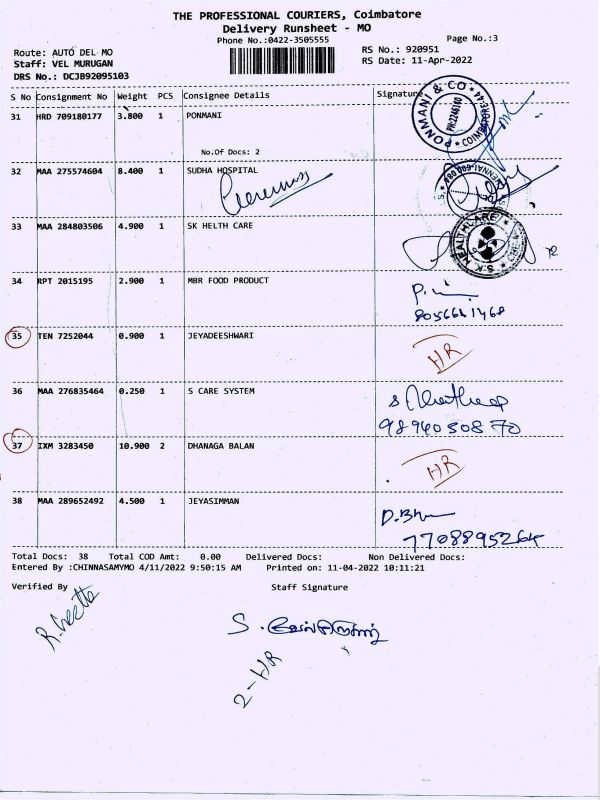 THE PROFESSIONAL COURIERS, Coimbatore
Delivery Runsheet - MO
Phone No.:0422-3505555
Page No.:3
Route: AUTO DEL MO
RS No.: 920951
Staff: VEL MURUGAN
RS Date: 11-Apr-2022
DRS No.: DCJB92095103
S No Consignment No Weight PCS Consignee Details Signature
31 HRD 709180177 3.800 1 PONMANI
PONMANI & CO
PH:2246140
COIMBATORE-44
No.Of Docs: 2
32 MAA 275574604 8.400 1 SUDHA HOSPITAL
CHENNAI-600 080
33 MAA 284803506 4.900 1 SK HELTH CARE
S.K HEALTHCARE
34 RPT 2015195 2.900 1 MBR FOOD PRODUCT
8056661468
35 TEN 7252044 0.900 1 JEYADEESHWARI HR
36 MAA 276835464 0.250 1 S CARE SYSTEM
9894030870
37 IXM 3283450 10.900 2 DHANAGA BALAN HR
38 MAA 289652492 4.500 1 JEYASIMMAN
7708895264
Total Docs: 38 Total COD Amt: 0.00 Delivered Docs: Non Delivered Docs:
Entered By :CHINNASAMYMO 4/11/2022 9:50:15 AM Printed on: 11-04-2022 10:11:21
Verified By Staff Signature
R.Geetha
2-HR